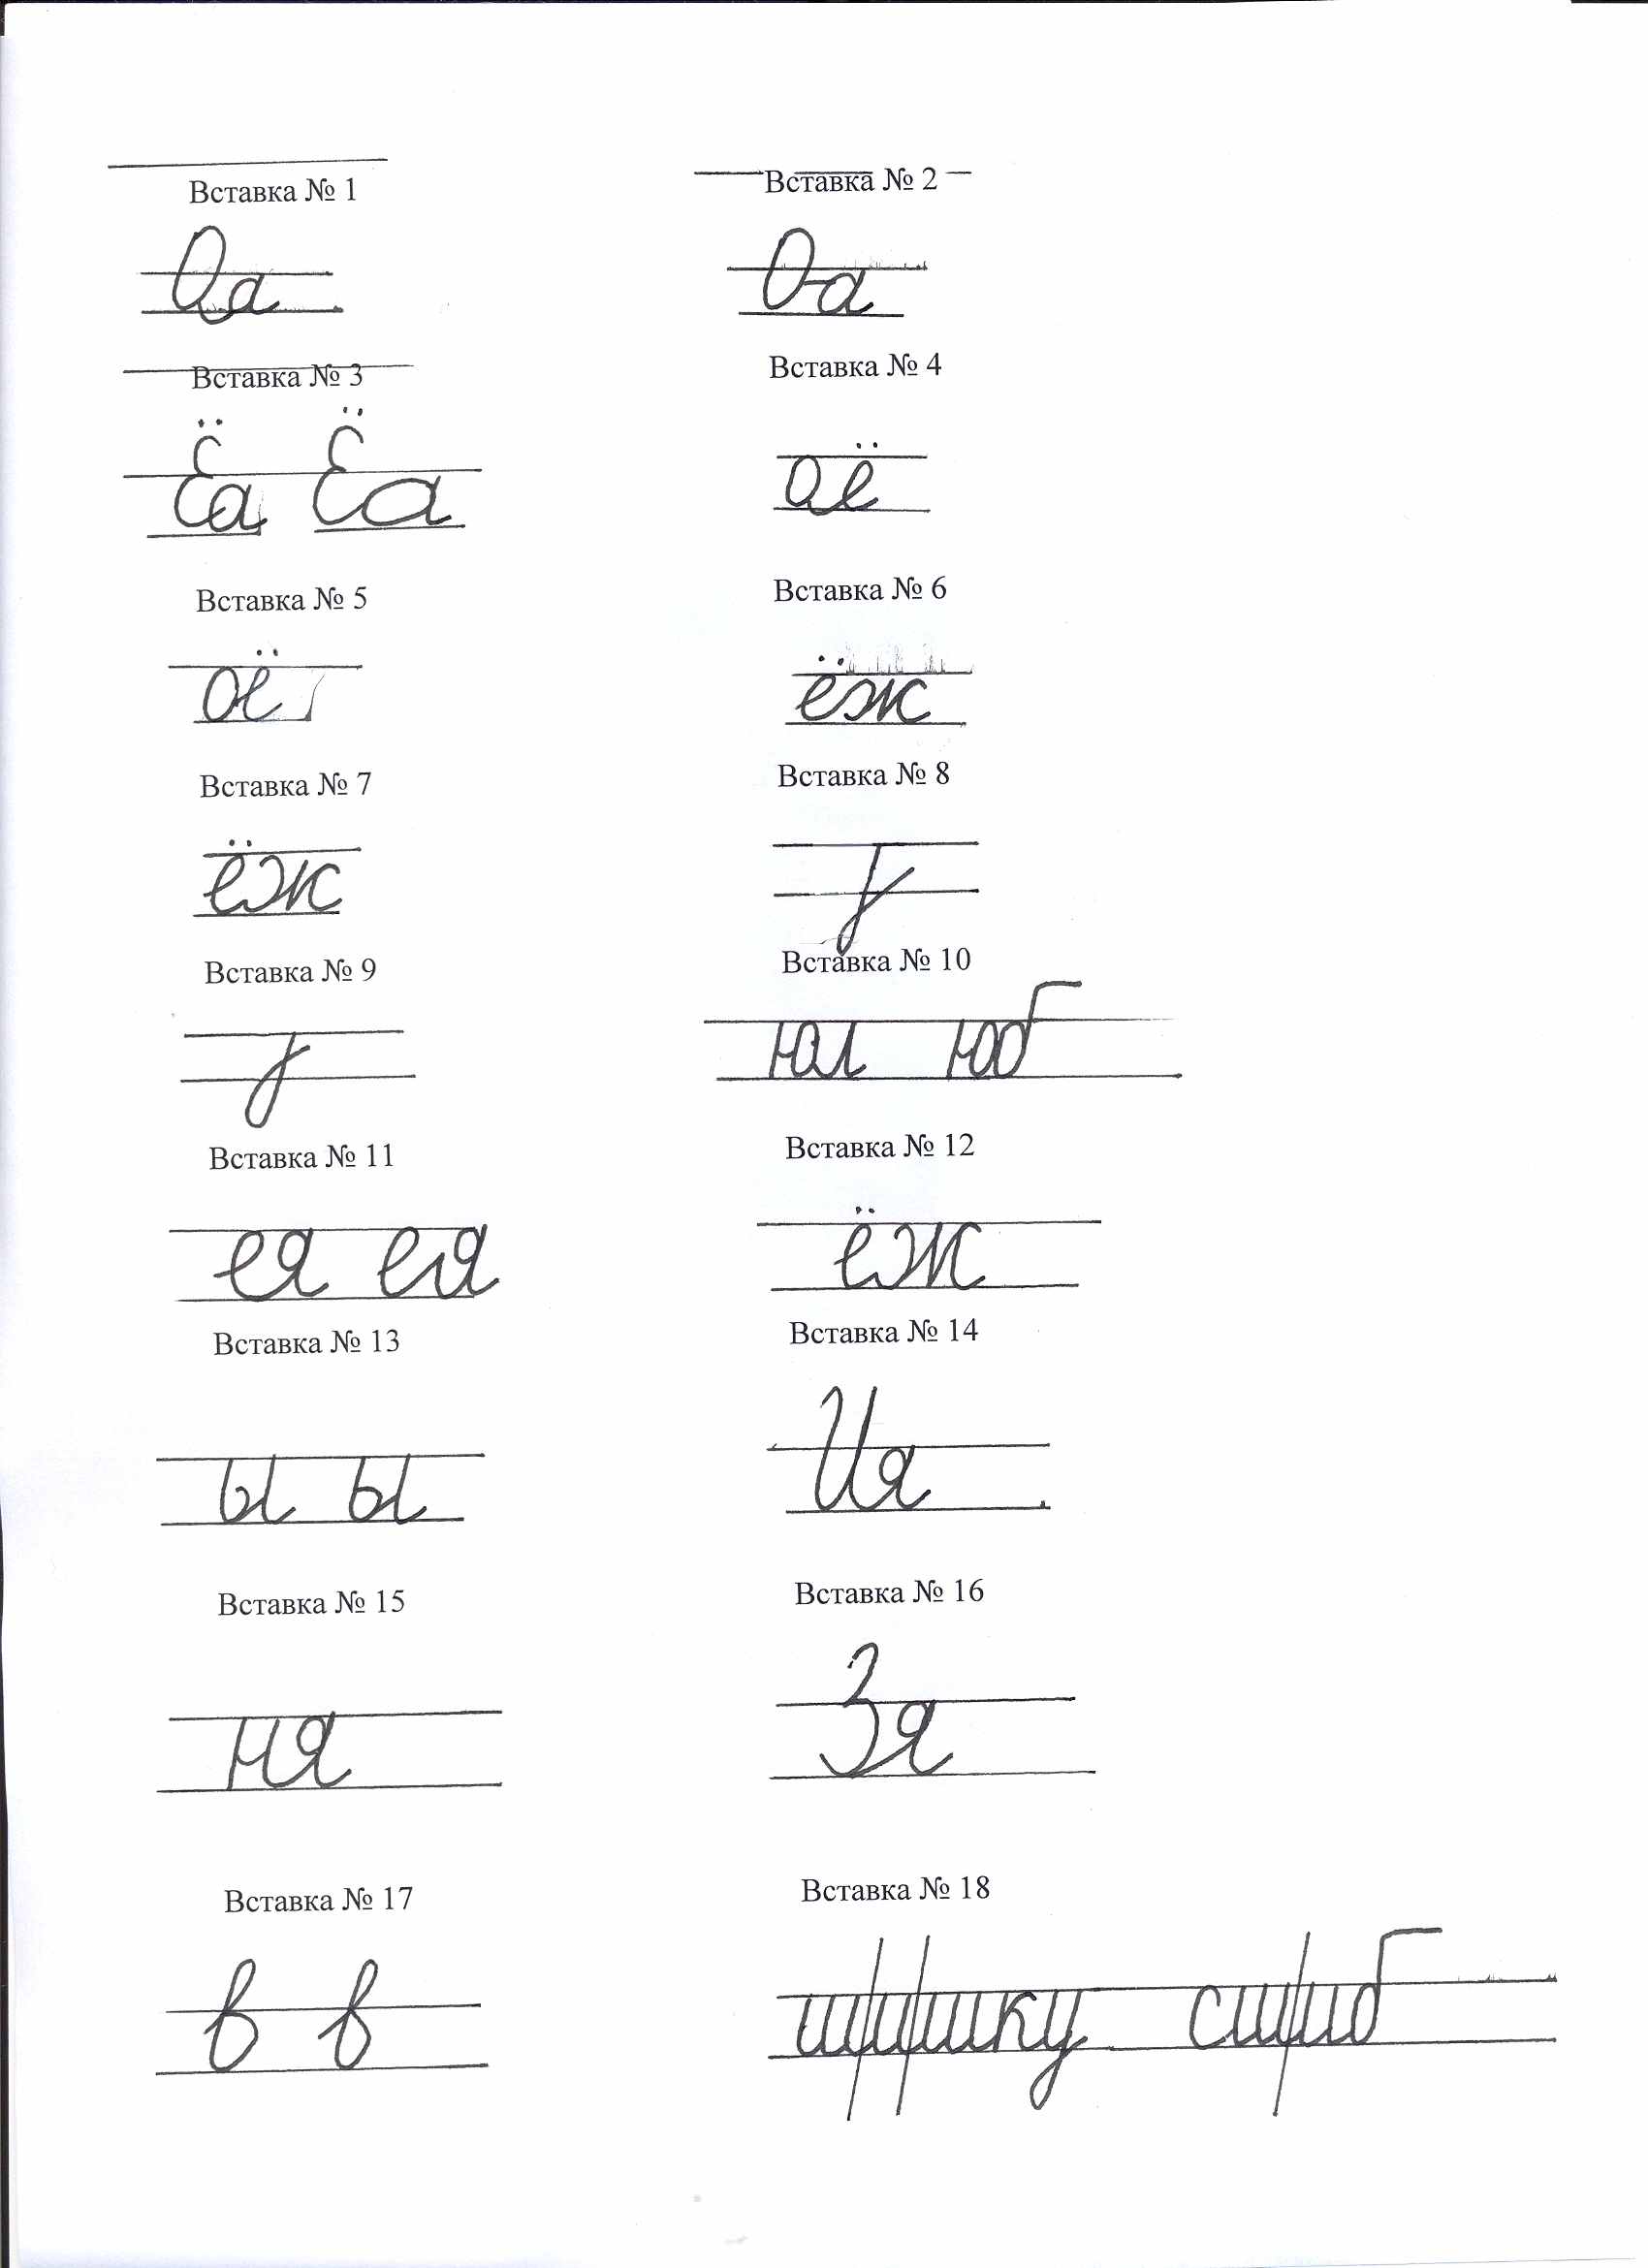 Вставка № 1 Вставка № 2
Оа Оа
Вставка № 3 Вставка № 4
Ёа Ёа оё
Вставка № 5 Вставка № 6
оё ёж
Вставка № 7 Вставка № 8
ёж
Вставка № 9 Вставка № 10
юл юб
Вставка № 11 Вставка № 12
ея ея ёж
Вставка № 13 Вставка № 14
ы ы Ия
Вставка № 15 Вставка № 16
ня Зя
Вставка № 17 Вставка № 18
в в